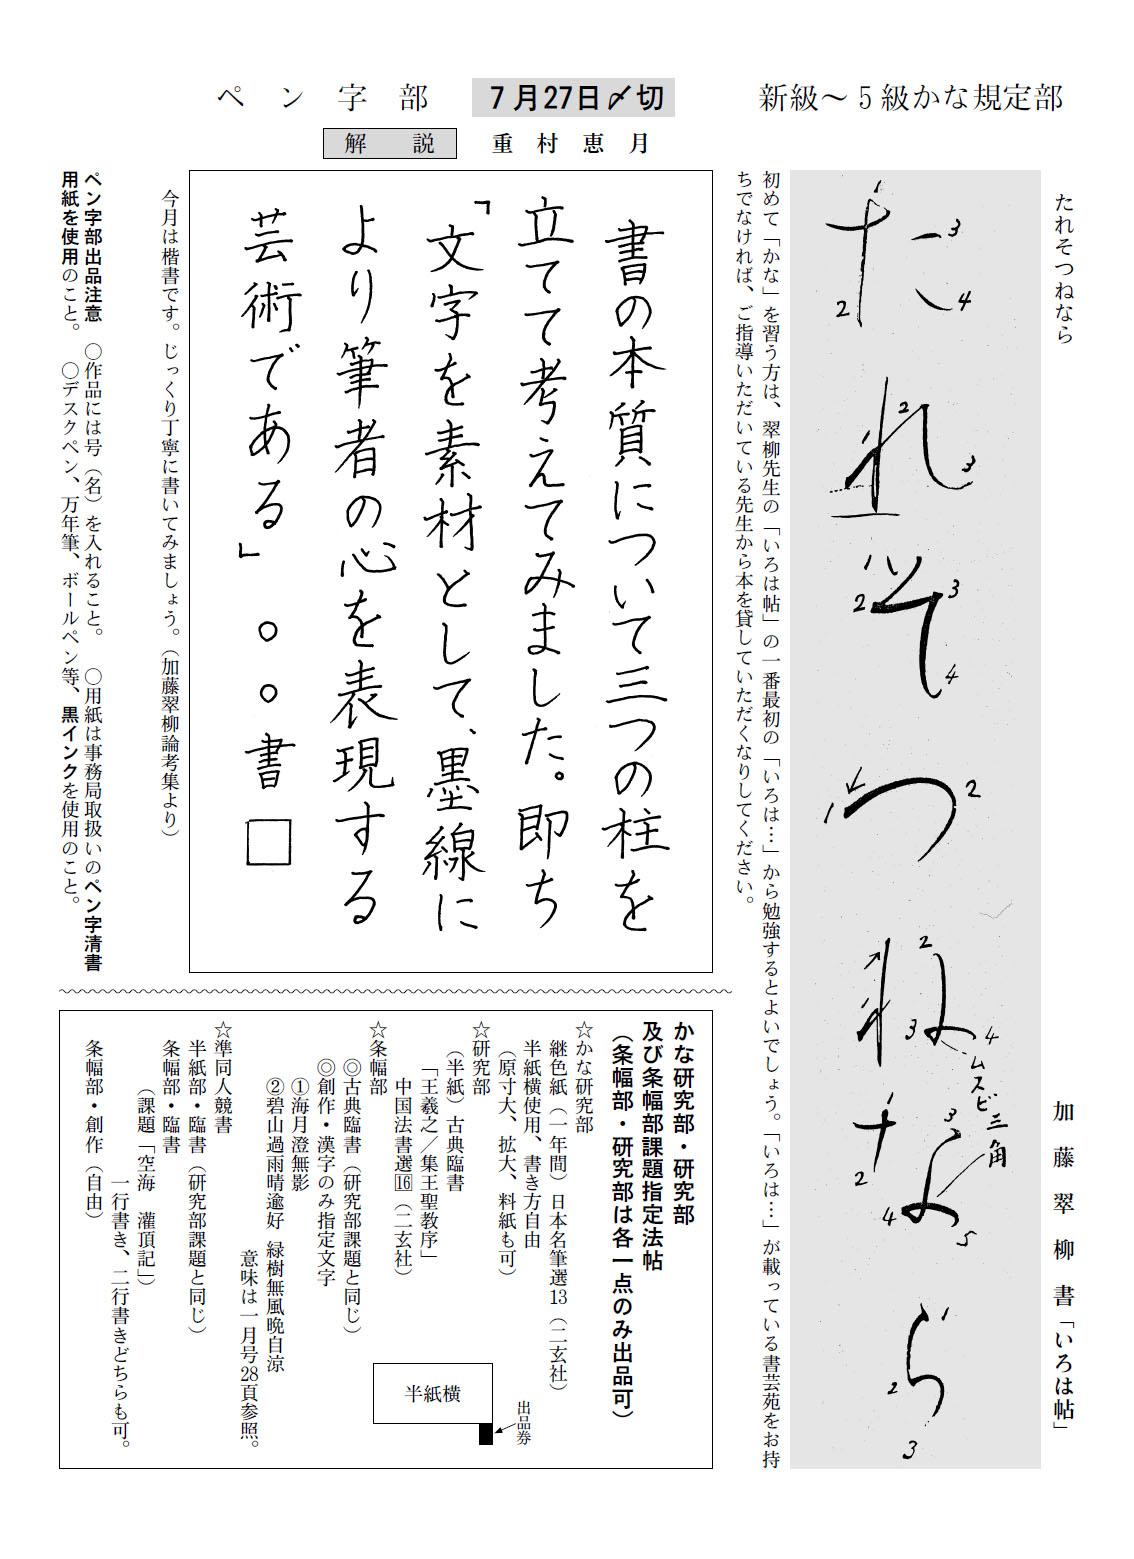 新級～5級かな規定部
たれそつねなら
加藤翠柳書「いろは帖」
た れ そ つ ね な ら
1 2 3 4
2 3
1 2 3 4
1 2
2 3 4
ムスビ三角
1 2 3 4 5
1 2 3
初めて「かな」を習う方は、翠柳先生の「いろは帖」の一番最初の「いろは…」から勉強するとよいでしょう。「いろは…」が載っている書芸苑をお持
ちでなければ、ご指導いただいている先生から本を貸していただくなりしてください。
ペン字部
7月27日〆切
解説
重村恵月
書の本質について三つの柱を
立てて考えてみました。即ち
「文字を素材として、墨線に
より筆者の心を表現する
芸術である」 。。書□
今月は楷書です。じっくり丁寧に書いてみましょう。（加藤翠柳論考集より）
ペン字部出品注意 ○作品には号（名）を入れること。 ○用紙は事務局取扱いのペン字清書
用紙を使用のこと。 ○デスクペン、万年筆、ボールペン等、黒インクを使用のこと。
かな研究部・研究部
及び条幅部課題指定法帖
（条幅部・研究部は各一点のみ出品可）
☆かな研究部
継色紙（一年間）日本名筆選13（二玄社）
半紙横使用、書き方自由
（原寸大、拡大、料紙も可）
☆研究部
（半紙）古典臨書
「王羲之／集王聖教序」
中国法書選16（二玄社）
☆条幅部
◎古典臨書（研究部課題と同じ）
◎創作・漢字のみ指定文字
①海月澄無影
②碧山過雨晴逾好 緑樹無風晩自涼
意味は一月号28頁参照。
☆準同人競書
半紙部・臨書（研究部課題と同じ）
条幅部・臨書
（課題「空海 灌頂記」）
一行書き、二行書きどちらも可。
条幅部・創作（自由）
半紙横
出品券